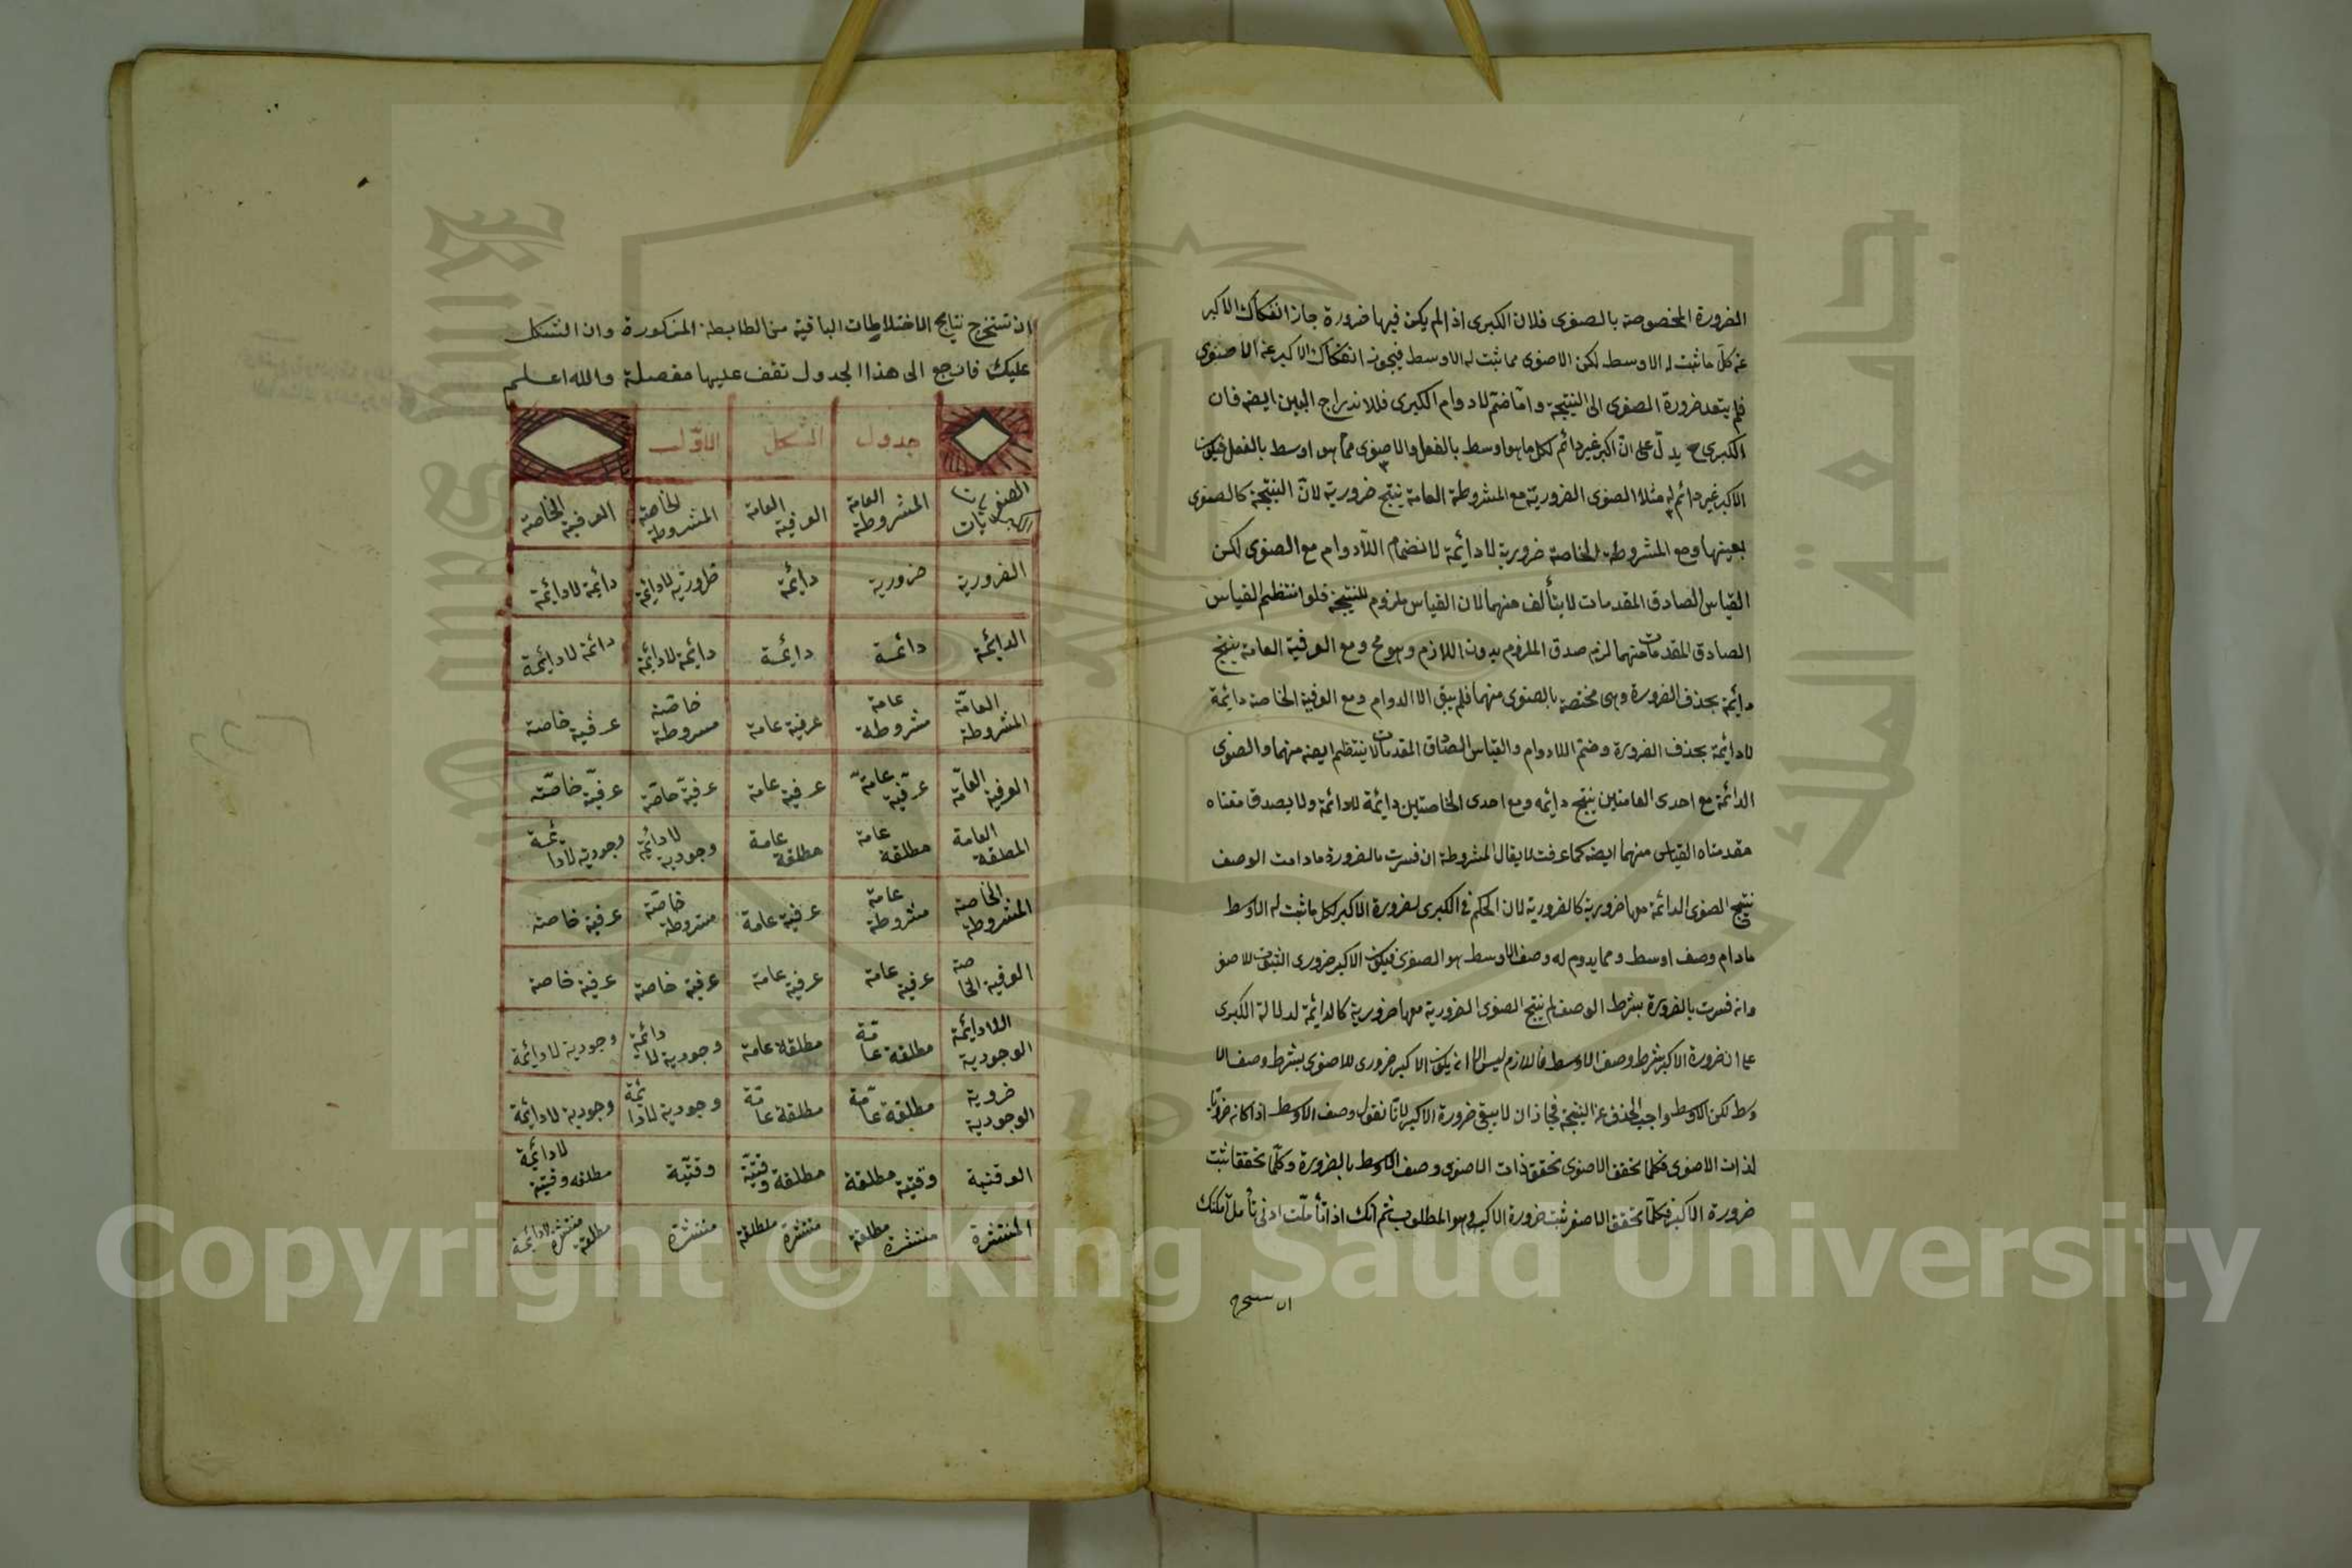 الضرورة المخصوصة بالصغرى فلان الكبرى اذا لم يكن فيها ضرورة جاز انفكاك الاكبر
عن كل ما ثبت له الاوسط لكن الاصغرى مما ثبت له الاوسط فيجوز انفكاك الاكبر عن الاصغرى
فلم يتعد ضرورة الصغرى الى النتيجة واما ضم لادوام الكبرى فللاندراج البين ايضه فان
الكبرى ح يدلّ على انّ اكبر غير دائم لكل ما هو اوسط بالفعل والاصغرى ممّا هو اوسط بالفعل فيكون
الاكبر غير دائم له مثلا الصغرى الضروريّة مع المشروطة العامة ينتج ضرورية لانّ النتيجة كالصغرى
بعينها ومع المشروطة الخاصة ضرورية لا دائمة لانضمام اللّادوام مع الصغرى لكن
القياس الصادق المقدمات لا يتألف منهما لان القياس ملزوم للنتيجة فلو انتظم القياس
الصادق المقدمات منهما لزم صدق الملزوم بدون اللازم وهو مح ومع العرفية العامة ينتج
دائمة بحذف الضرورة وهى مختصة بالصغرى منهما فلم يبق الا الدوام ومع العرفية الخاصة دائمة
لادائمة بحذف الضرورة وضم اللادوام والقياس الصادق المقدمات لا ينتظم ايضه منهما والصغرى
الدائمة مع احدى العامتين ينتج دائمه ومع احدى الخاصتين دائمة لادائمة ولا يصدق مقتاه
مقدمتاه القياس منهما ايضه كما عرفت لا يقال المشروطة ان فسرت بالضرورة مادامت الوصف
نتج الصغرى الدائمة معها ضرورية كالضرورية لان الحكم فى الكبرى بضرورة الاكبر لكل ما ثبت له الاوسط
مادام وصف اوسط ومما يدوم له وصف الاوسط هو الصغرى فيكون الاكبر ضرورى الثبوت للاصغر
وان فسرت بالضرورة بشرط الوصف لم ينتج الصغرى الضرورية معها ضرورية كالدائمة لدلالة الكبرى
على ان ضرورة الاكبر بشرط وصف الاوسط فاللازم ليس الا ان يكون الاكبر ضرورى للاصغرى بشرط وصف الا
وسط لكن الاوسط واجب الحذف عن النتيجة فجاز ان لا يبقى ضرورة الاكبر لانّا نقول وصف الاوسط اذا كانه ضروريا
لذات الاصغرى فكلما تحقق الاصغرى تحقق ذات الاصغرى وصف الاوسط بالضرورة وكلّما تحققا ثبت
ضرورة الاكبر فكلّما تحقق الاصغر ثبت ضرورة الاكبر وهو المطلوب ثم انك اذا تأملت ادنى تأمل امكنك
ان تستخرج
ان تستخرج نتايج الاختلاطات الباقية من الطابطة المذكورة وان اشكل
عليك فارجع الى هذا الجدول تقف عليها مفصلة والله اعلم
جدول الشكل الاوّل
الصغريات الكبريات المشروطة العامة العرفية العامة المشروطة الخاصة العرفية الخاصة
الضرورية ضرورية دائمة ظروريّة لادائمة دائمة لادائمة
الدائمة دائمة دائمة دائمة لادائمة دائمة لادائمة
المشروطة العامّة مشروطة عامة عرفية عامة مشروطة خاصّة عرفية خاصة
العرفية العامّة عرفيّة عامّة عرفية عامة عرفيّة خاصّة عرفيّة خاصّة
المطلقة العامة مطلقة عامة مطلقة عامة وجودية لادائمة وجودية لادائمة
المشروطة الخاصة مشروطة عامة عرفية عامة مشروطة خاصّة عرفية خاصة
العرفية الخاصة عرفية عامة عرفية عامة عرفية خاصة عرفية خاصة
الوجودية اللادائمة مطلقة عامّة مطلقة عامة وجودية لادائمة وجودية لادائمة
الوجودية ضروية مطلقة عامّة مطلقة عامّة وجودية لادائمة وجودية لادائمة
الوقتية وقتيّة مطلقة مطلقة وقتيّة وقتيّة مطلقه وقتيّة لادائمة
المنتشرة منتشرة مطلقة منتشرة مطلقة منتشرة مطلقة منتشرة لادائمة
جامعة الملك سعود
King Saud University
1957
Copyright © King Saud University